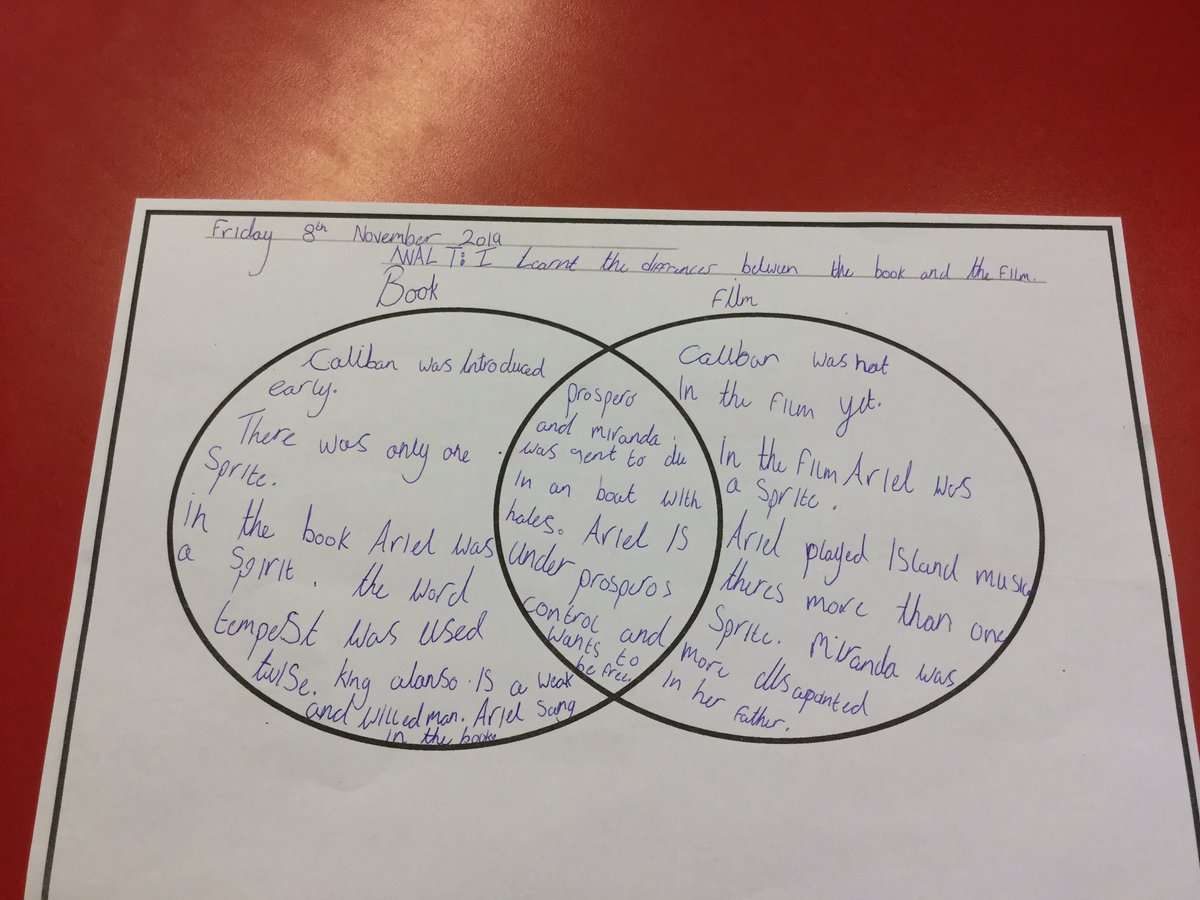 Friday 8th November 2019
WALT: I Learnt the differences between the book and the Film.
Book
Film
Caliban was Introduced
early.
There was only one
Sprite.
in the book Ariel was
a Spirit. the word
tempest was used
twise. King alonso is a weak
and willed man. Ariel Sang
in the book.
prospero
and miranda.
was sent to die
In an boat with
holes. Ariel Is
Under prosperos
control and
wants to
be free.
Caliban was not
In the Film yet.
In the Film Ariel was
a Sprite.
Ariel played Island music
theres more than one
Sprite. Miranda was
more disapointed
In her
Father.